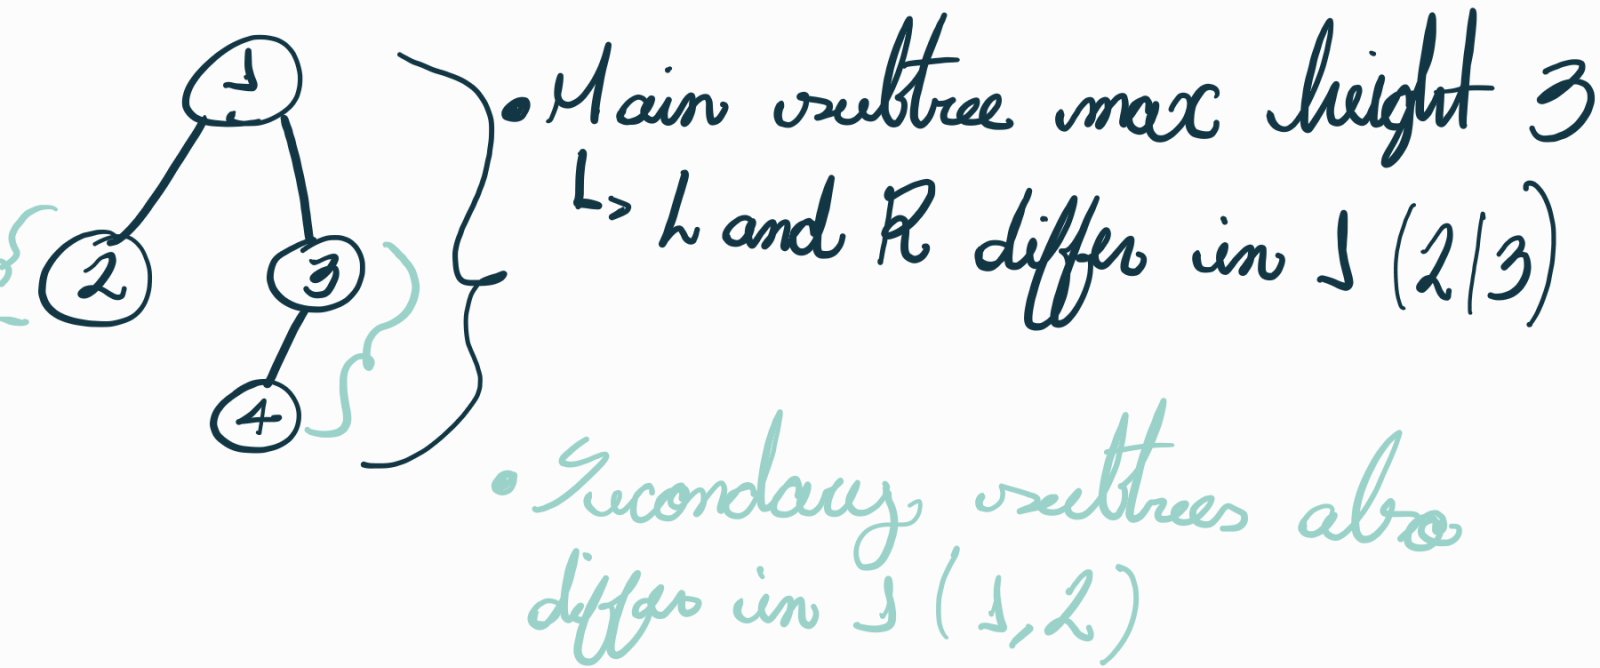 1
• Main subtree max height 3
↳ L and R differ in 1 (2/3)
2 3
4
• Secondary subtrees also
differ in 1 (1,2)